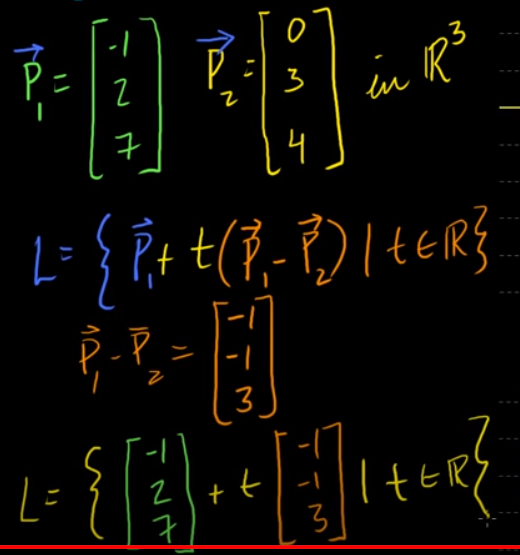 P⃗₁ = [-1 2 7] P⃗₂ = [0 3 4] in ℝ³
L = { P⃗₁ + t(P⃗₁ - P⃗₂) | t ∈ ℝ }
P⃗₁ - P⃗₂ = [-1 -1 3]
L = { [-1 2 7] + t [-1 -1 3] | t ∈ ℝ }